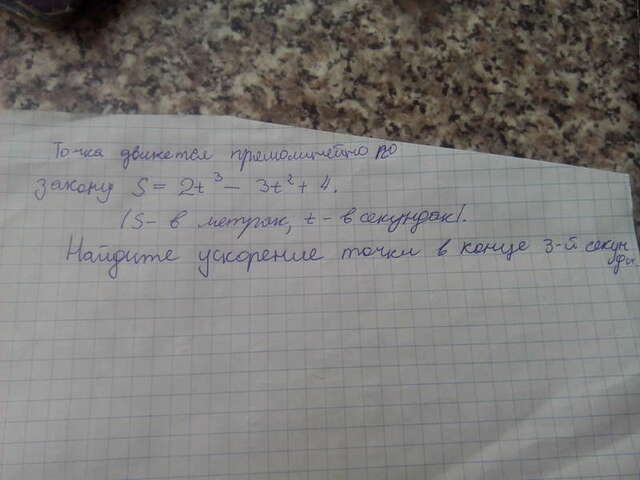 Точка движется прямолинейно по
закону S = 2t³ - 3t² + 4.
(S - в метрах, t - в секундах).
Найдите ускорение точки в конце 3-й секунды